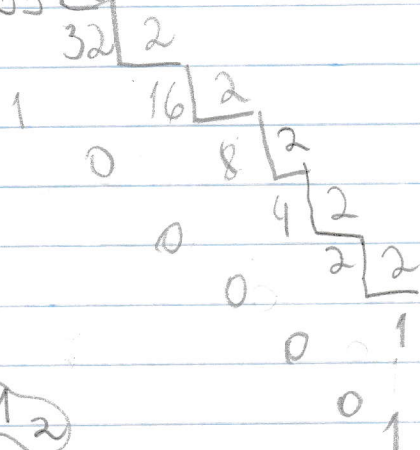 32 2
1 16 2
0 8 2
0 4 2
0 2 2
0 1
0
1
1 2